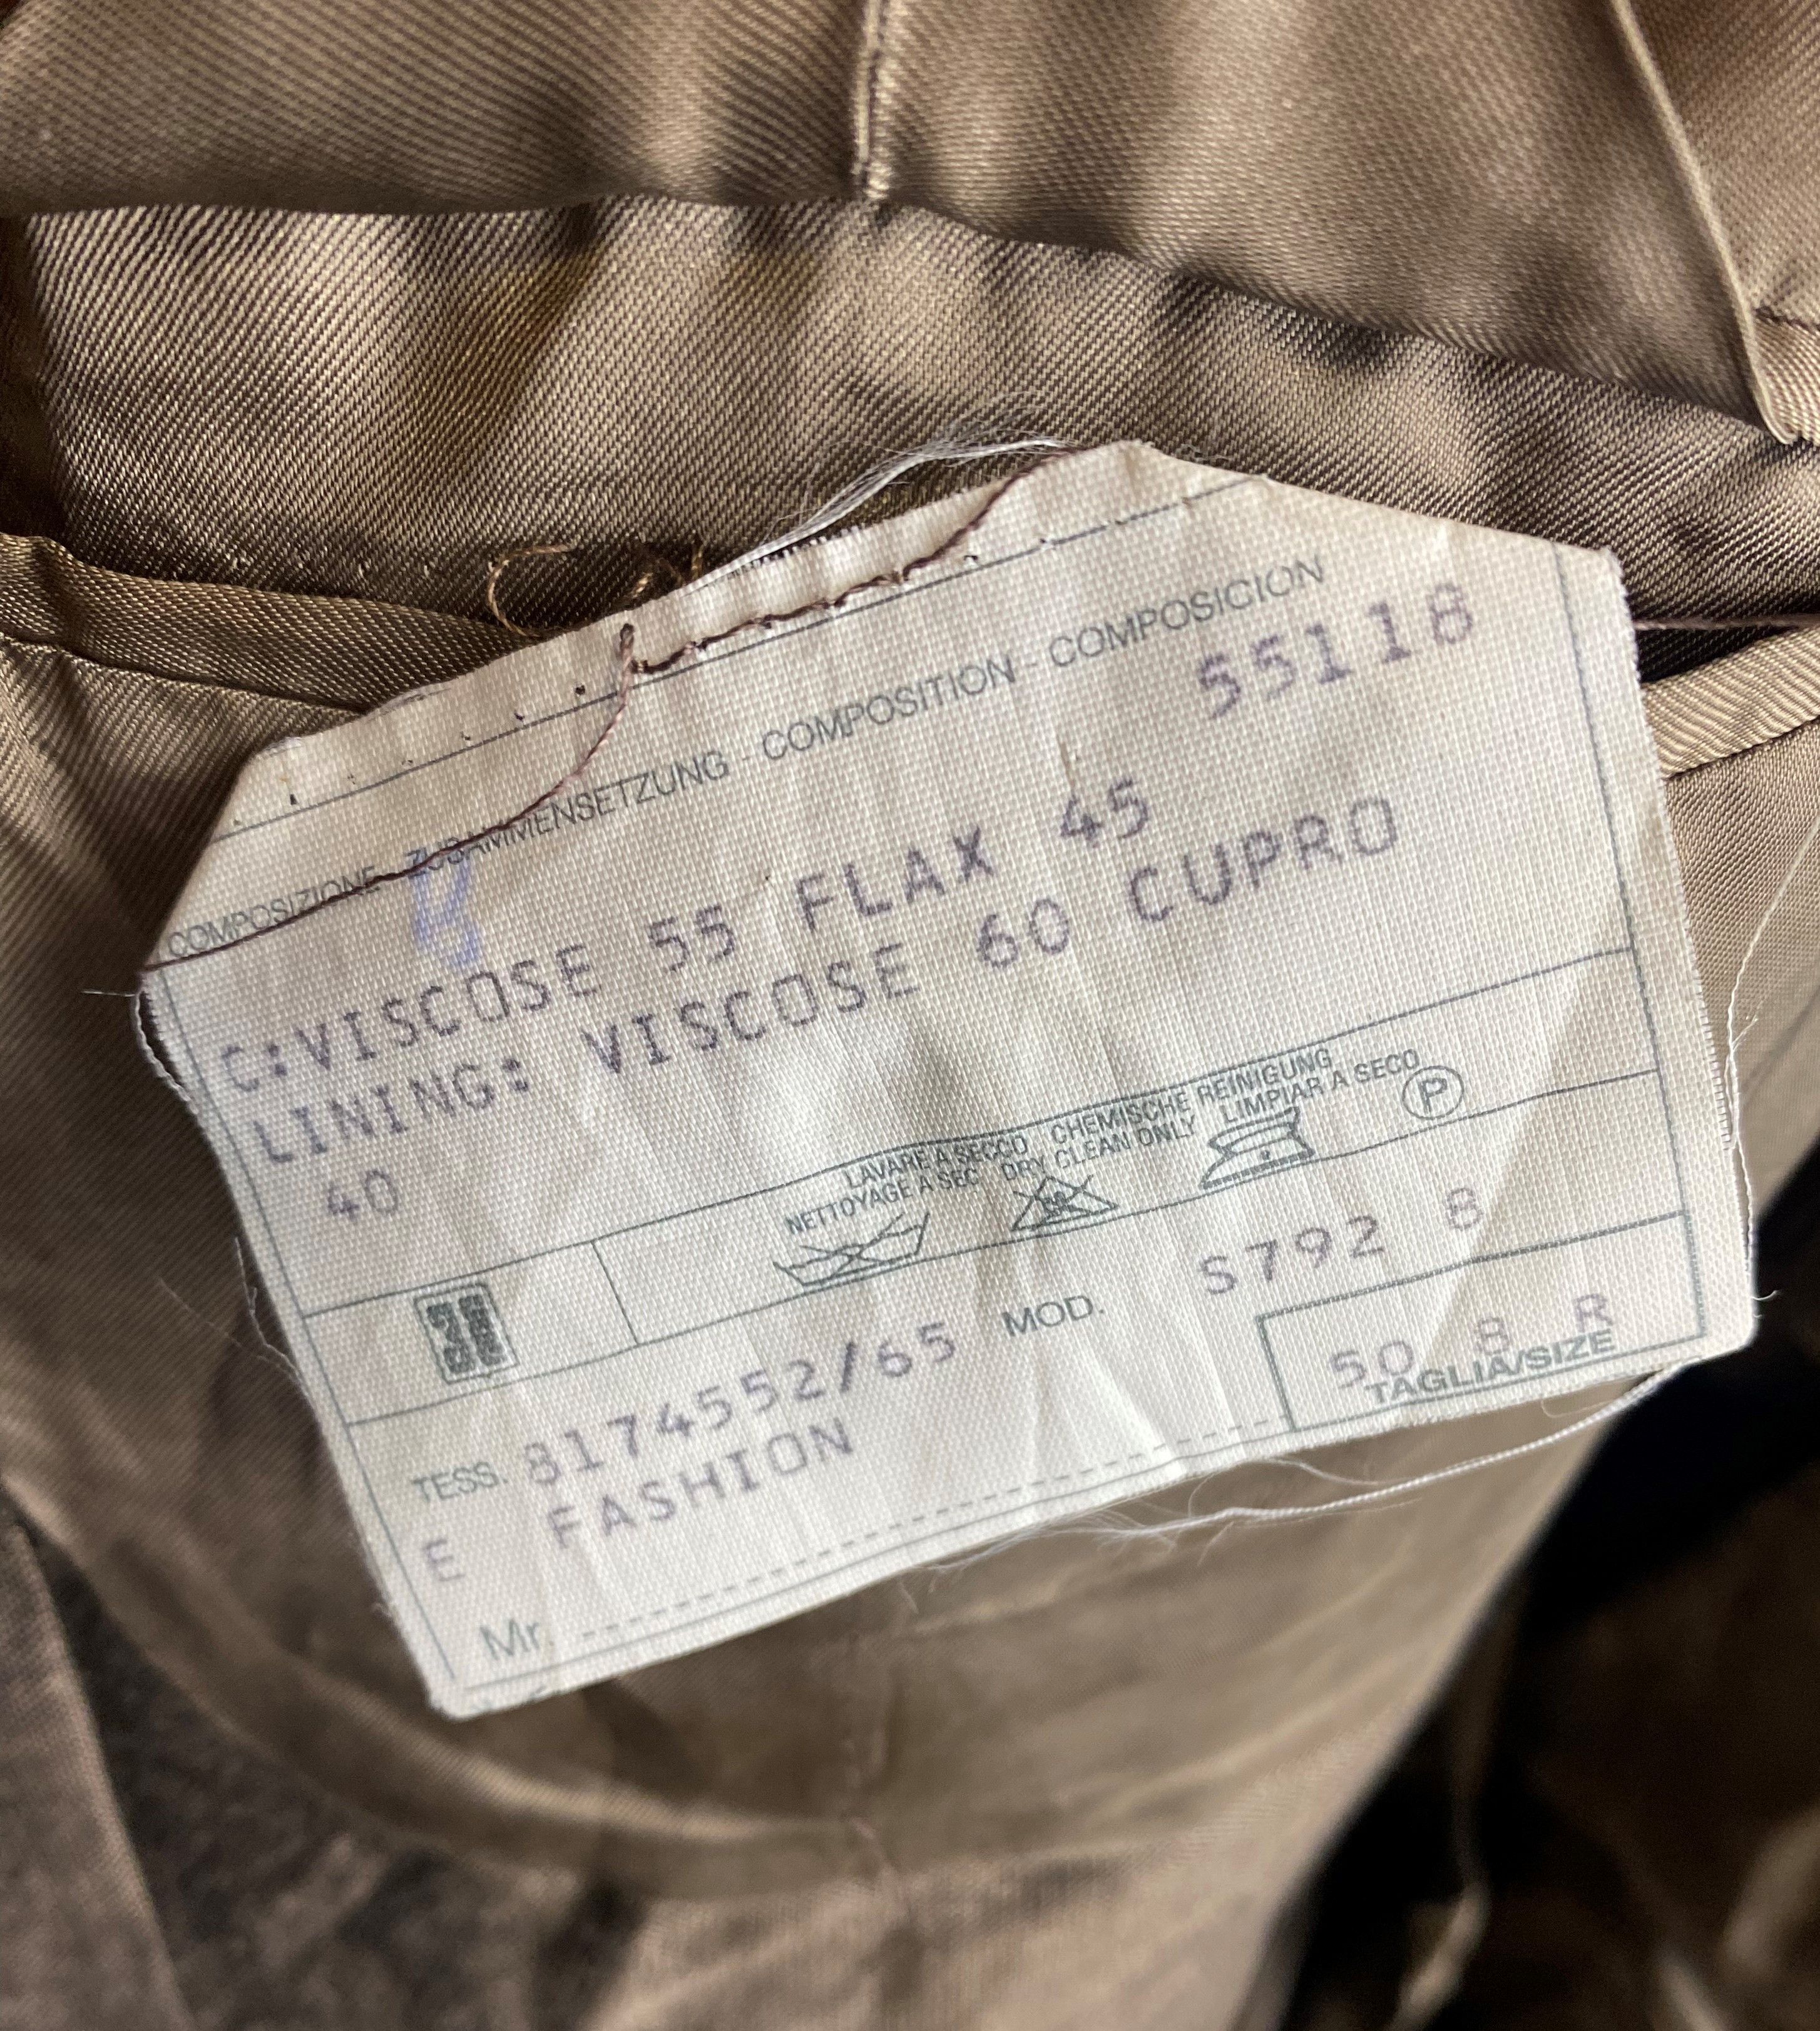 COMPOSIZIONE - ZUSAMMENSETZUNG - COMPOSITION - COMPOSICION
55118
C:VISCOSE 55 FLAX 45
LINING: VISCOSE 60 CUPRO
40
LAVARE A SECCO CHEMISCHE REINIGUNG
NETTOYAGE A SEC DRY CLEAN ONLY LIMPIAR A SECO
P
TESS. 8174552/65 MOD. S792 8
E FASHION
50 8 R
TAGLIA/SIZE
Mr.